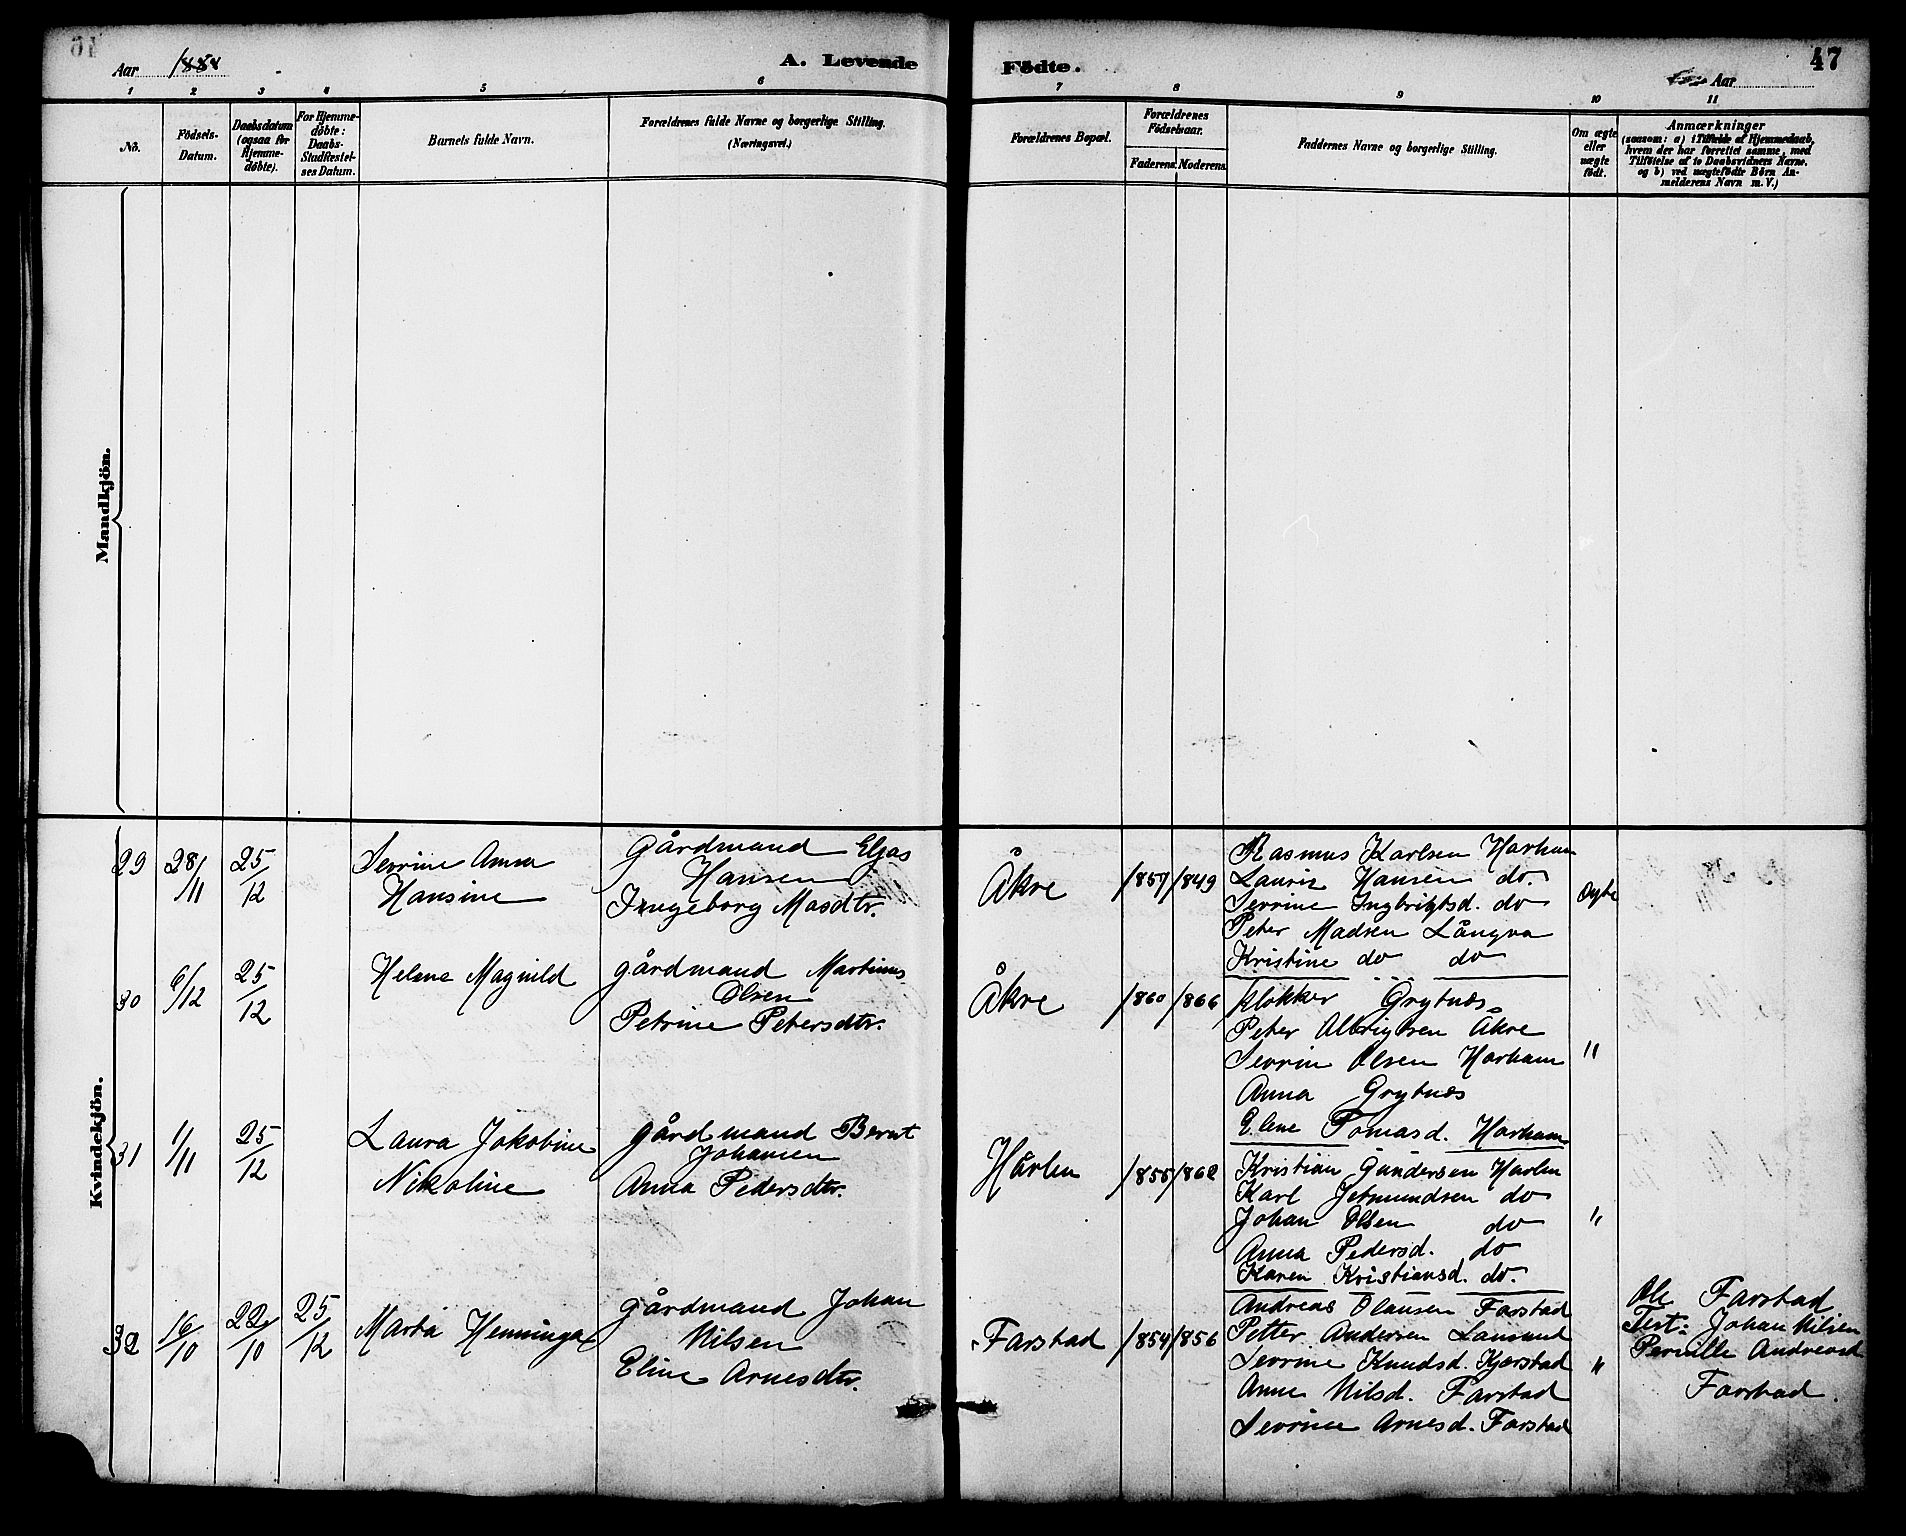 Aar 1888
A. Levende
Födte.
Aar
47
1
2
3
4
5
6
7
8
9
10
11
No.
Födsels-
Datum.
Daabsdatum
(ogsaa for
Hjemme-
döbte).
For Hjemme-
döbte:
Daabs-
Stadfæstel-
ses Datum.
Barnets fulde Navn.
Forældrenes fulde Navne og borgerlige Stilling.
(Næringsvei.)
Forældrenes Bopæl.
Forældrenes
Födselsaar.
Faderens.
Moderens.
Faddernes Navne og borgerlige Stilling.
Om ægte
eller
uægte
födt.
Anmærkninger
(saasom: a) i Tilfælde af Hjemmedaab,
hvem der har forrettet samme, med
Tilföielse af to Daabsvidners Navne.
og b) ved uægtefödte Börn An-
melderens Navn m. V.)
Mandkjön.
Kvindekjön.
29
28/11
25/12
Sevrine Anna
Hansine
Gårdmand Eljas
Hansen
Ingeborg Masdtr.
Åkre
1857
1849
Rasmus Karlsen Harham
Lauris Hansen do.
Sevrine Ingbrigtsd. do
Peter Madsen Långva
Kristine do do
Ægte
30
6/12
25/12
Helene Magnild
gårdmand Martinus
Olsen
Petrine Petersdtr.
Åkre
1860
1866
Klokker Grytnæs
Peter Albrigtsen Åkre
Sevrin Olsen Harham
Anna Grytnæs
Elene Tomasd. Harham
"
31
1/11
25/12
Laura Jakobine
Nikoline
gårdmand Bernt
Johansen
Anna Pedersdtr.
Hårlen
1855
1862
Kristian Gundersen Harlen
Karl Jetmundsen do
Johan Olsen do
Anna Pedersd. do
Karen Kristiansd. do.
"
32
16/10
22/10
25/12
Marta Henninga
gårdmand Johan
Nilsen
Eline Arnesdtr.
Farstad
1854
1856
Andreas Olausen Farstad
Petter Andersen
Sevrine Knudsd. Kjerstad
Anne Nilsd. Farstad
Sevrine Arnesd. Farstad
"
Ole Farstad
Test: Johan Nilsen
Pernille Andreasd
Farstad.